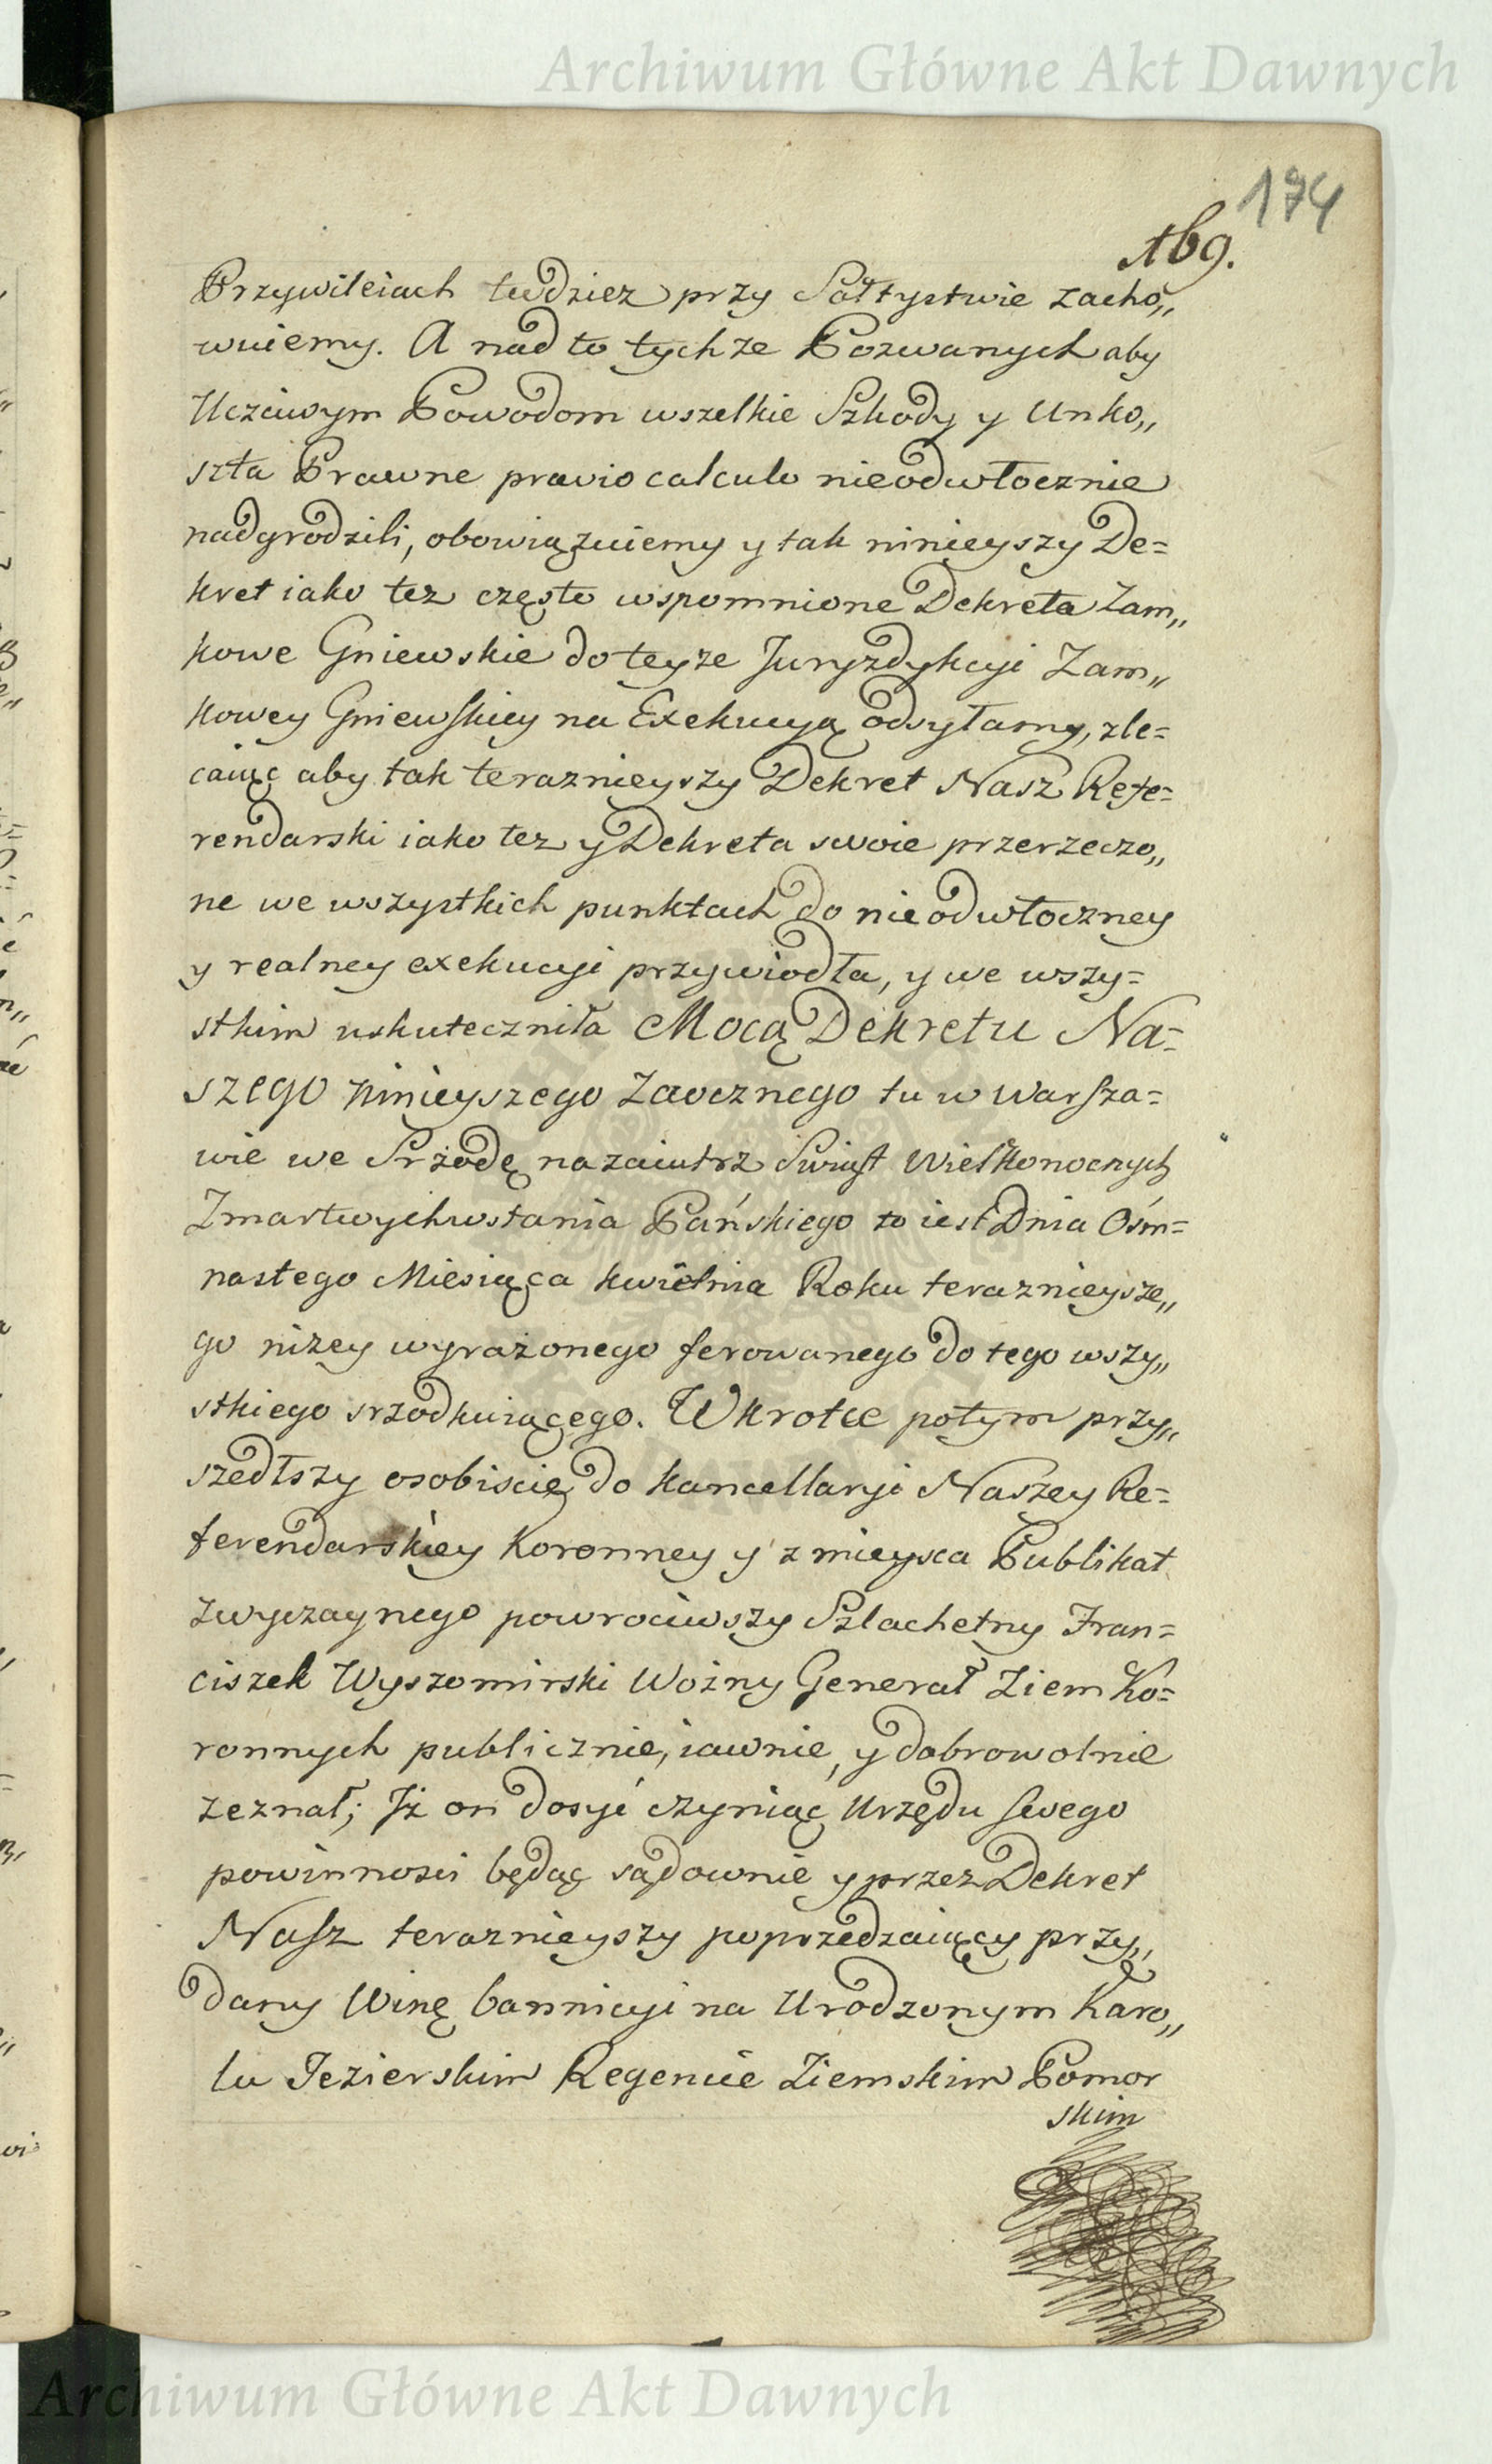 Archiwum Główne Akt Dawnych
174
169.
Przywileiach tudziez przy Sołtystwie zacho„
wuiemy. A nad to tychze Pozwanych aby
Uczciwym Powodom wszelkie Szkody y Unko„
szta Prawne previo calculo nieodwłocznie
nadgrodzili, obowiązuiemy y tak ninieyszy De=
kret iako tez często wspomnione Dekreta Zam„
kowe Gniewskie do teyze Juryzdykcyi Zam„
kowey Gniewskiey na Exekucyą odsyłamy, zle=
caiąc aby tak teraznieyszy Dekret Nasz Refe=
rendarski iako tez y Dekreta swoie przerzeczo„
ne we wszystkich punktach do nieodwłoczney
y realney exekucyi przywiodła, y we wszy=
stkim uskuteczniła Mocą Dekretu Na=
szego ninieyszego Zaocznego tu w Warsza=
wie we Srzodę nazaiutrz Swiąt Wielkonocnych
Zmartwychwstania Pańskiego to iest Dnia Ośm=
nastego Miesiąca kwietnia Roku teraznieysze„
go nizey wyrażonego ferowanego do tego wszy„
stkiego srzodkuiącego. Wkrotce potym przy„
szedłszy osobiscie do kancellaryi Naszey Re=
ferendarskiey Koronney y z mieysca Publikat
zwyczaynego powrociwszy Szlachetny Fran=
ciszek Wyszomirski Woźny Generał Ziem Ko=
ronnych publicznie, iawnie, y dobrowolnie
zeznał; Iż on dosyć czyniąc Urzędu swego
powinnosci będąc sądownie y przez Dekret
Nasz teraznieyszy poprzedzaiący przy„
dany Winę bannicyi na Urodzonym Karo„
lu Jezierskim Regencie Ziemskim Pomor
skim
Archiwum Główne Akt Dawnych